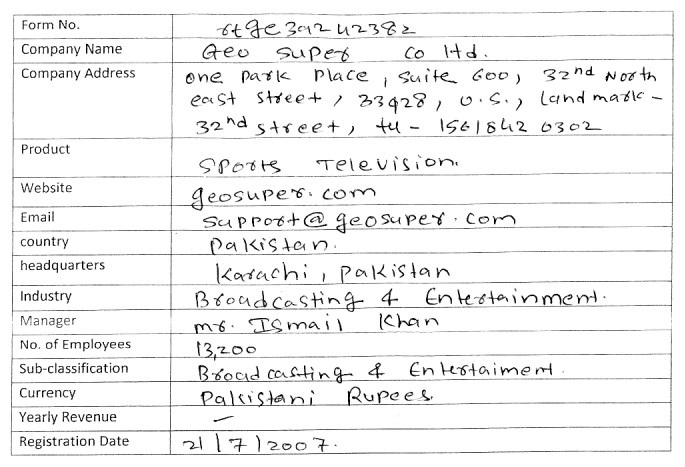 Form No. rtge39242382
Company Name Geo super Co ltd.
Company Address one park place, suite 600, 32nd North
east street, 33428, U.S., Landmark-
32nd street, tel - 1561842 0302
Product Sports Television.
Website geosuper.com
Email support@geosuper.com
country Pakistan.
headquarters Karachi, Pakistan
Industry Broadcasting & Entertainment.
Manager mr. Ismail Khan
No. of Employees 13,200
Sub-classification Broadcasting & Entertaiment.
Currency Pakistani Rupees.
Yearly Revenue —
Registration Date 21/7/2007.